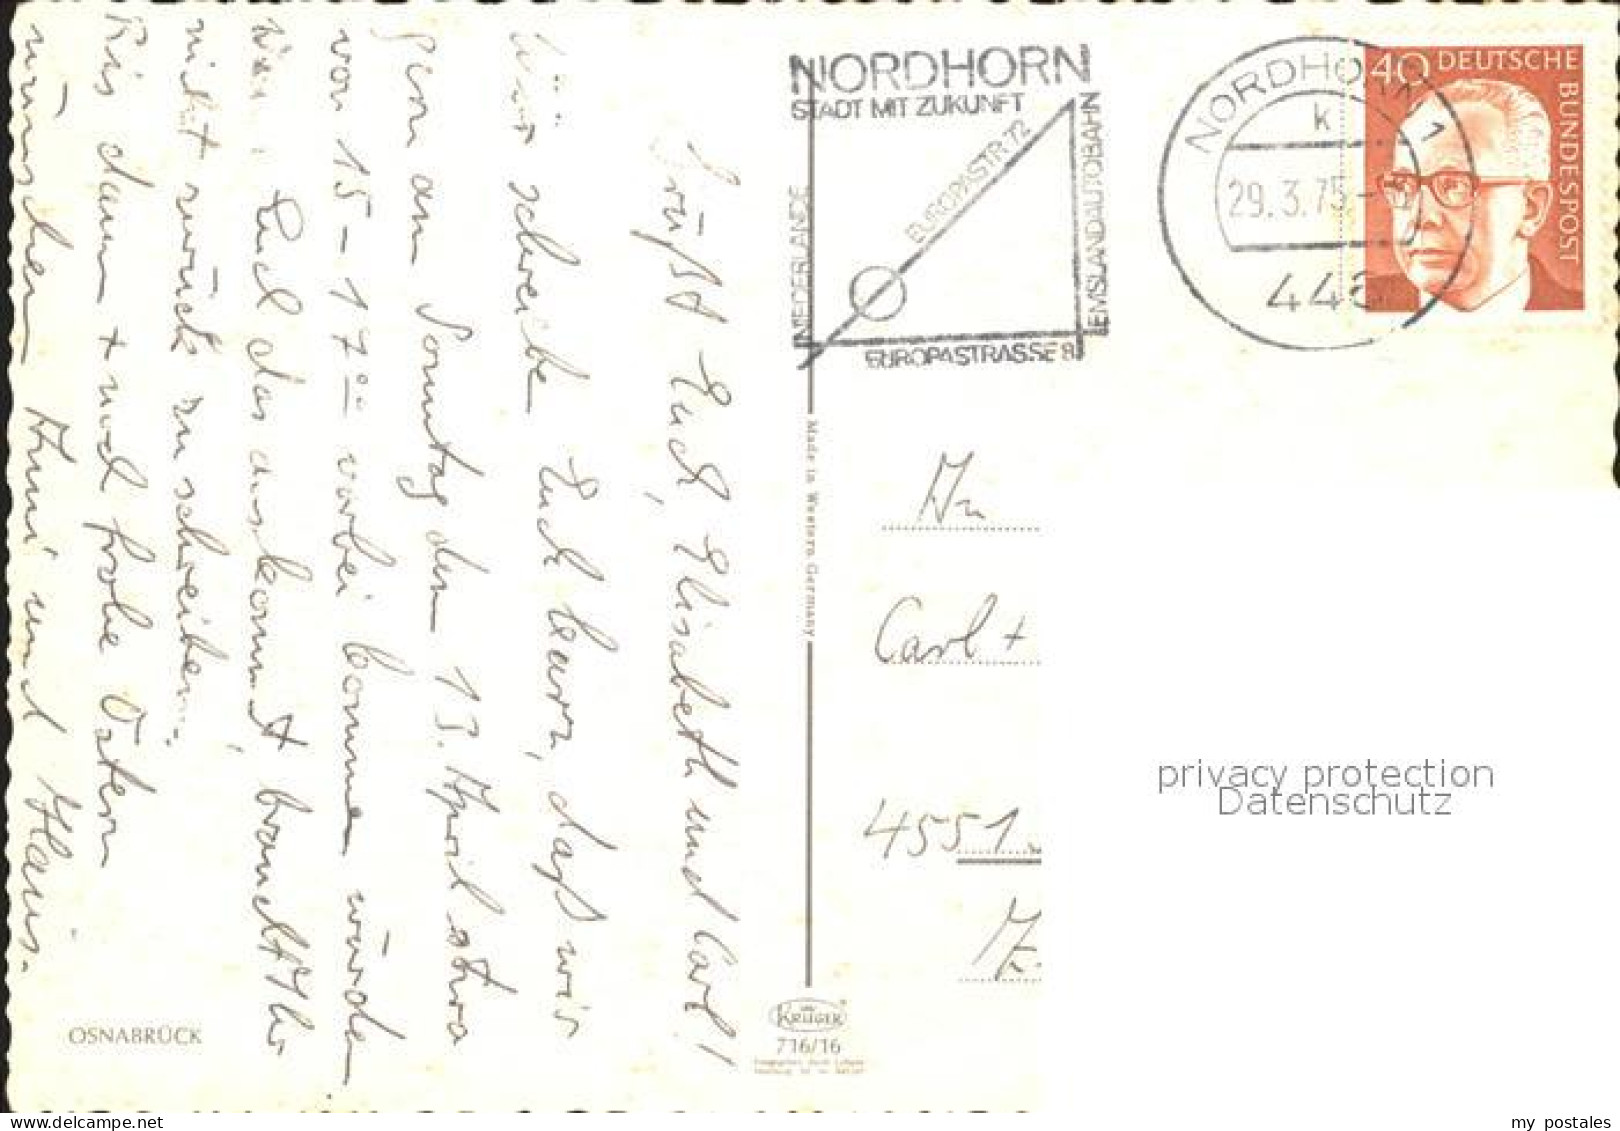 Grüßt Euch, Elisabeth und Carl!
schreibe Euch kurz, daß wir
gern am Sonntag den 13. April etwa
von 15-17°° vorbei kommen würden
Euch das auskommt, braucht Ihr
nicht zurück zu schreiben.
Bis dann + noch frohe Ostern
wünschen Anni und Hans.
OSNABRÜCK
NORDHORN
STADT MIT ZUKUNFT
NIEDERLANDE
EUROPASTR. 72
EMSLANDAUTOBAHN
EUROPASTRASSE 8
Made in Western-Germany
KRÜGER
716/16
NORDHORN 1
k
29.3.75
40 DEUTSCHE
BUNDESPOST
An
Carl +
4551
privacy protection
Datenschutz
my postales